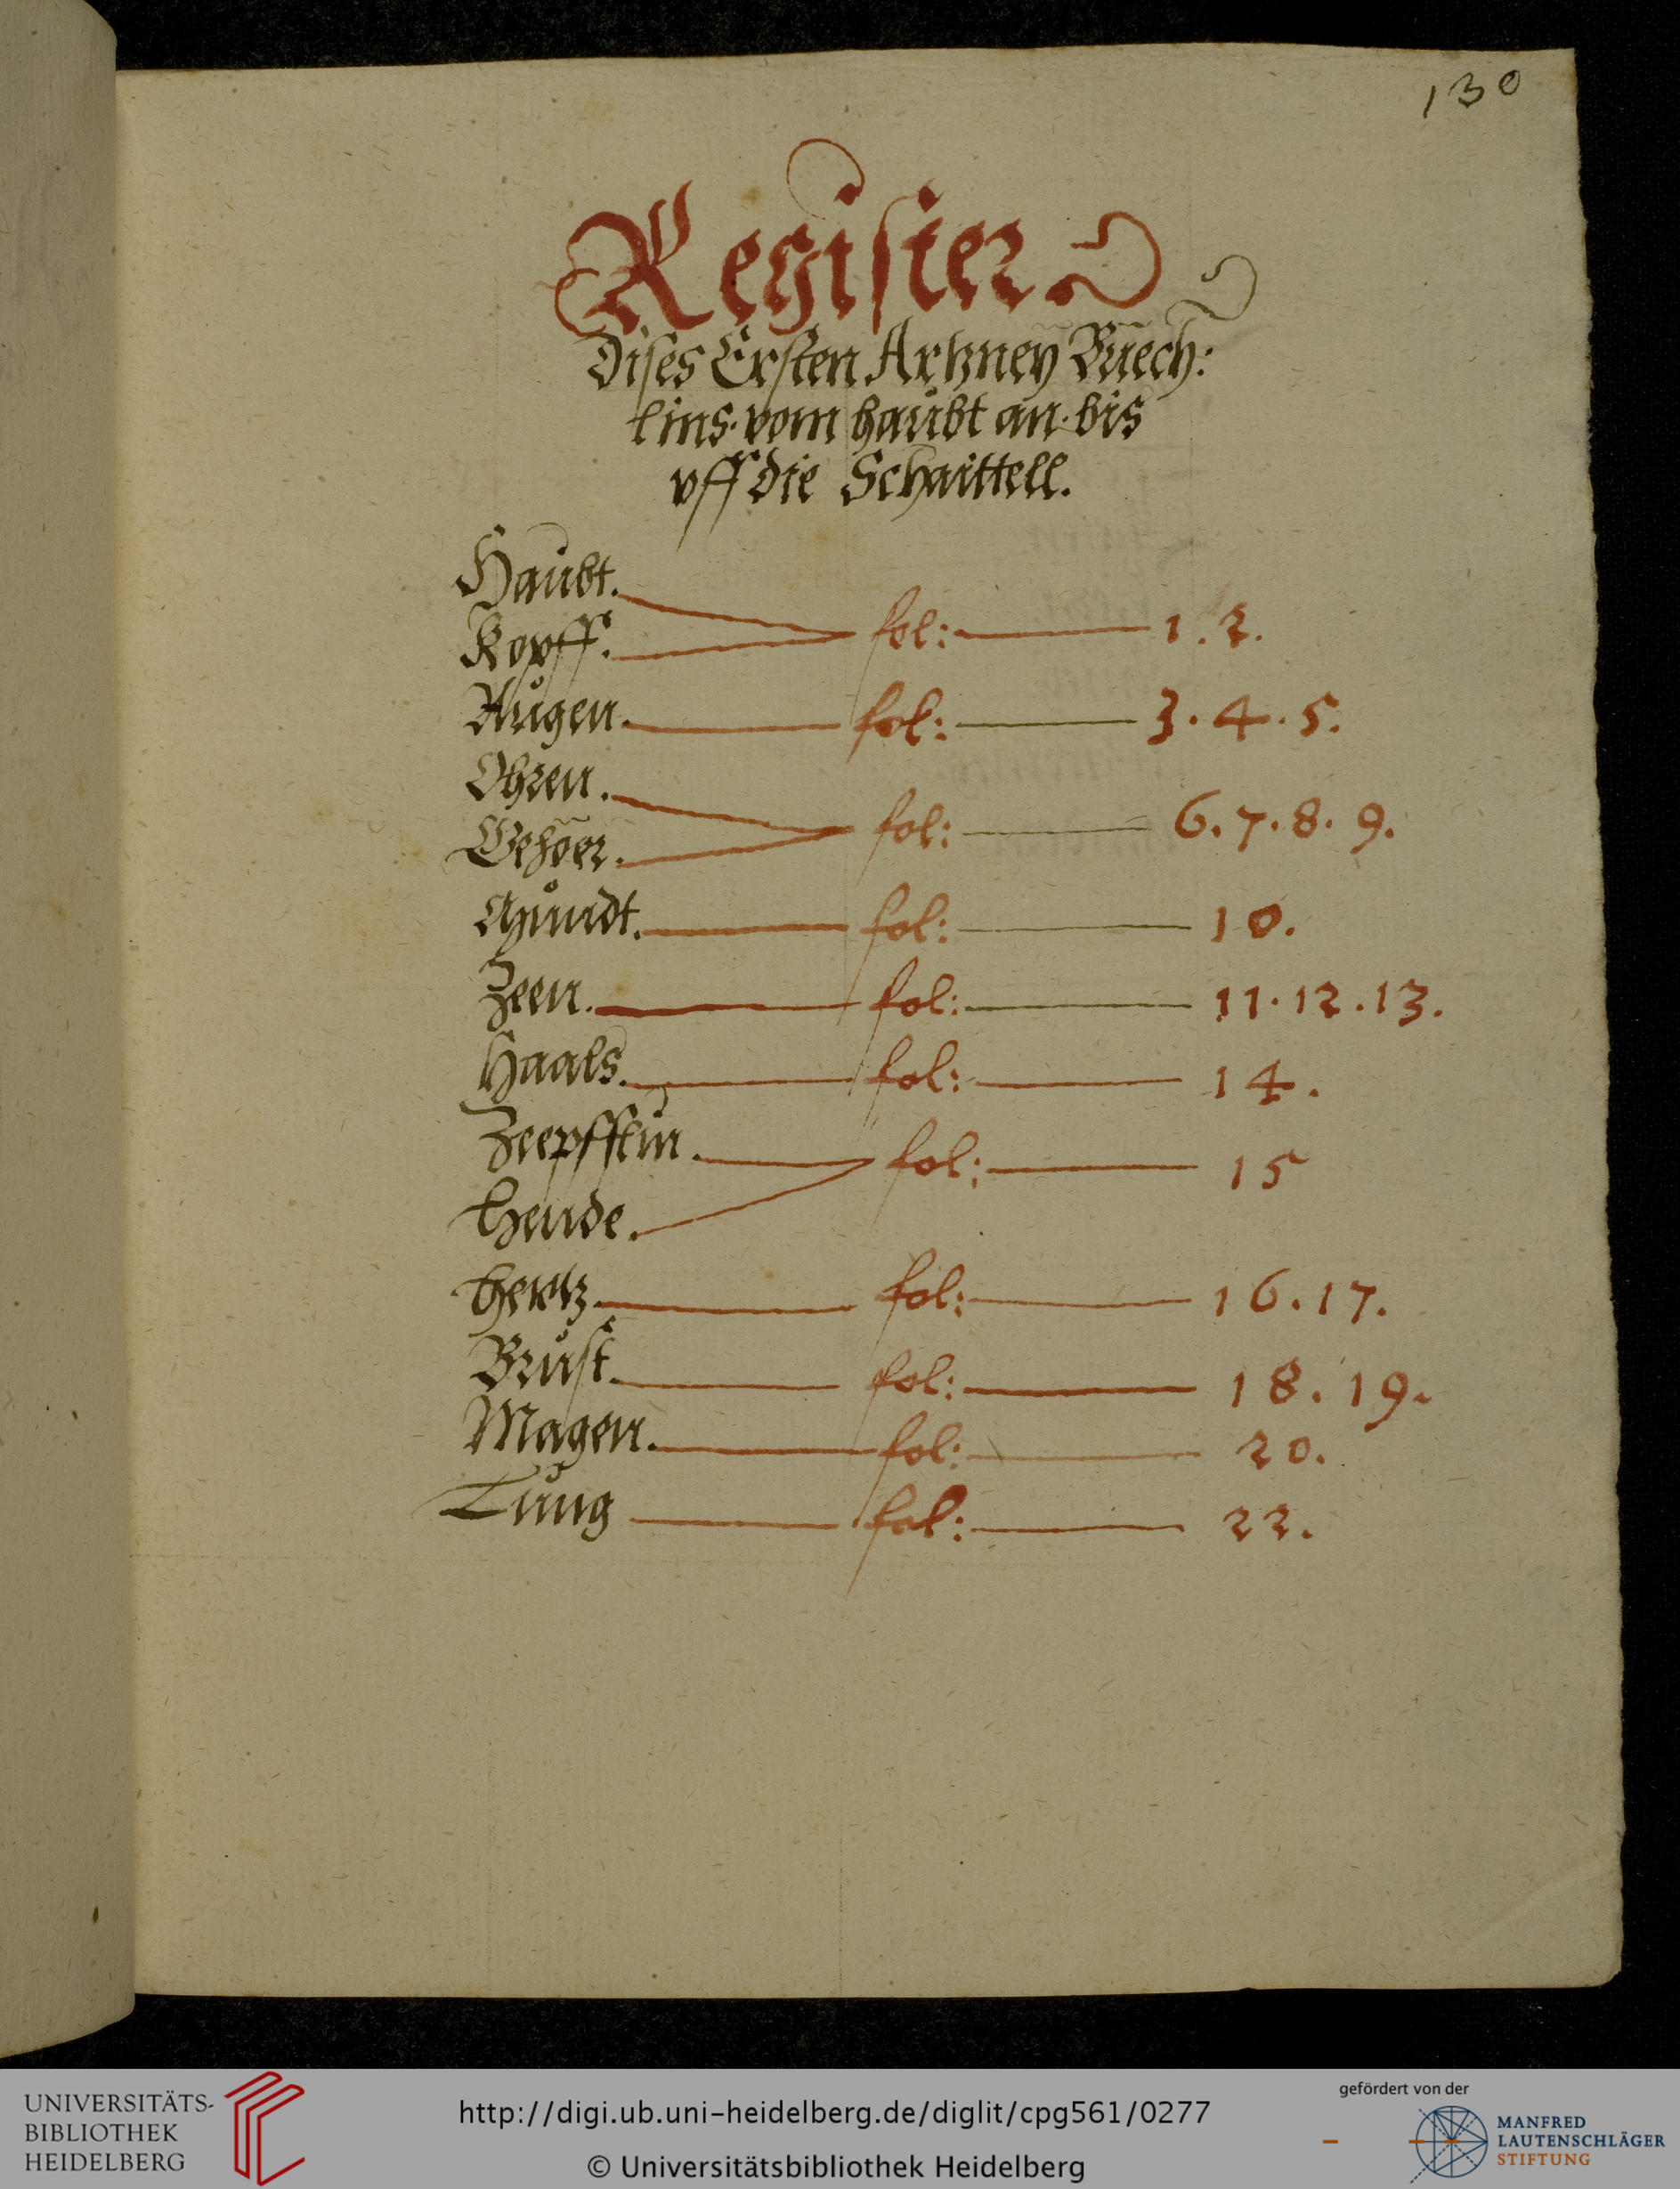 130
Register
dises Ersten Artzney Buech:
lins. vom haubt an. bis
vff die Schaittell.
Haubt.
Kopff. fol: 1. 2.
Augen. fol: 3. 4. 5.
Ohren.
Gehöer. fol: 6. 7. 8. 9.
Mundt. fol: 10.
Zeen. fol: 11. 12. 13.
Haals. fol: 14.
Zeepfflin. fol: 15
Hende.
Hertz. fol: 16. 17.
Brust. fol: 18. 19.
Magen. fol: 20.
Lung fol: 22.
UNIVERSITÄTS-
BIBLIOTHEK
HEIDELBERG
http://digi.ub.uni-heidelberg.de/diglit/cpg561/0277
© Universitätsbibliothek Heidelberg
gefördert von der
MANFRED
LAUTENSCHLÄGER
STIFTUNG